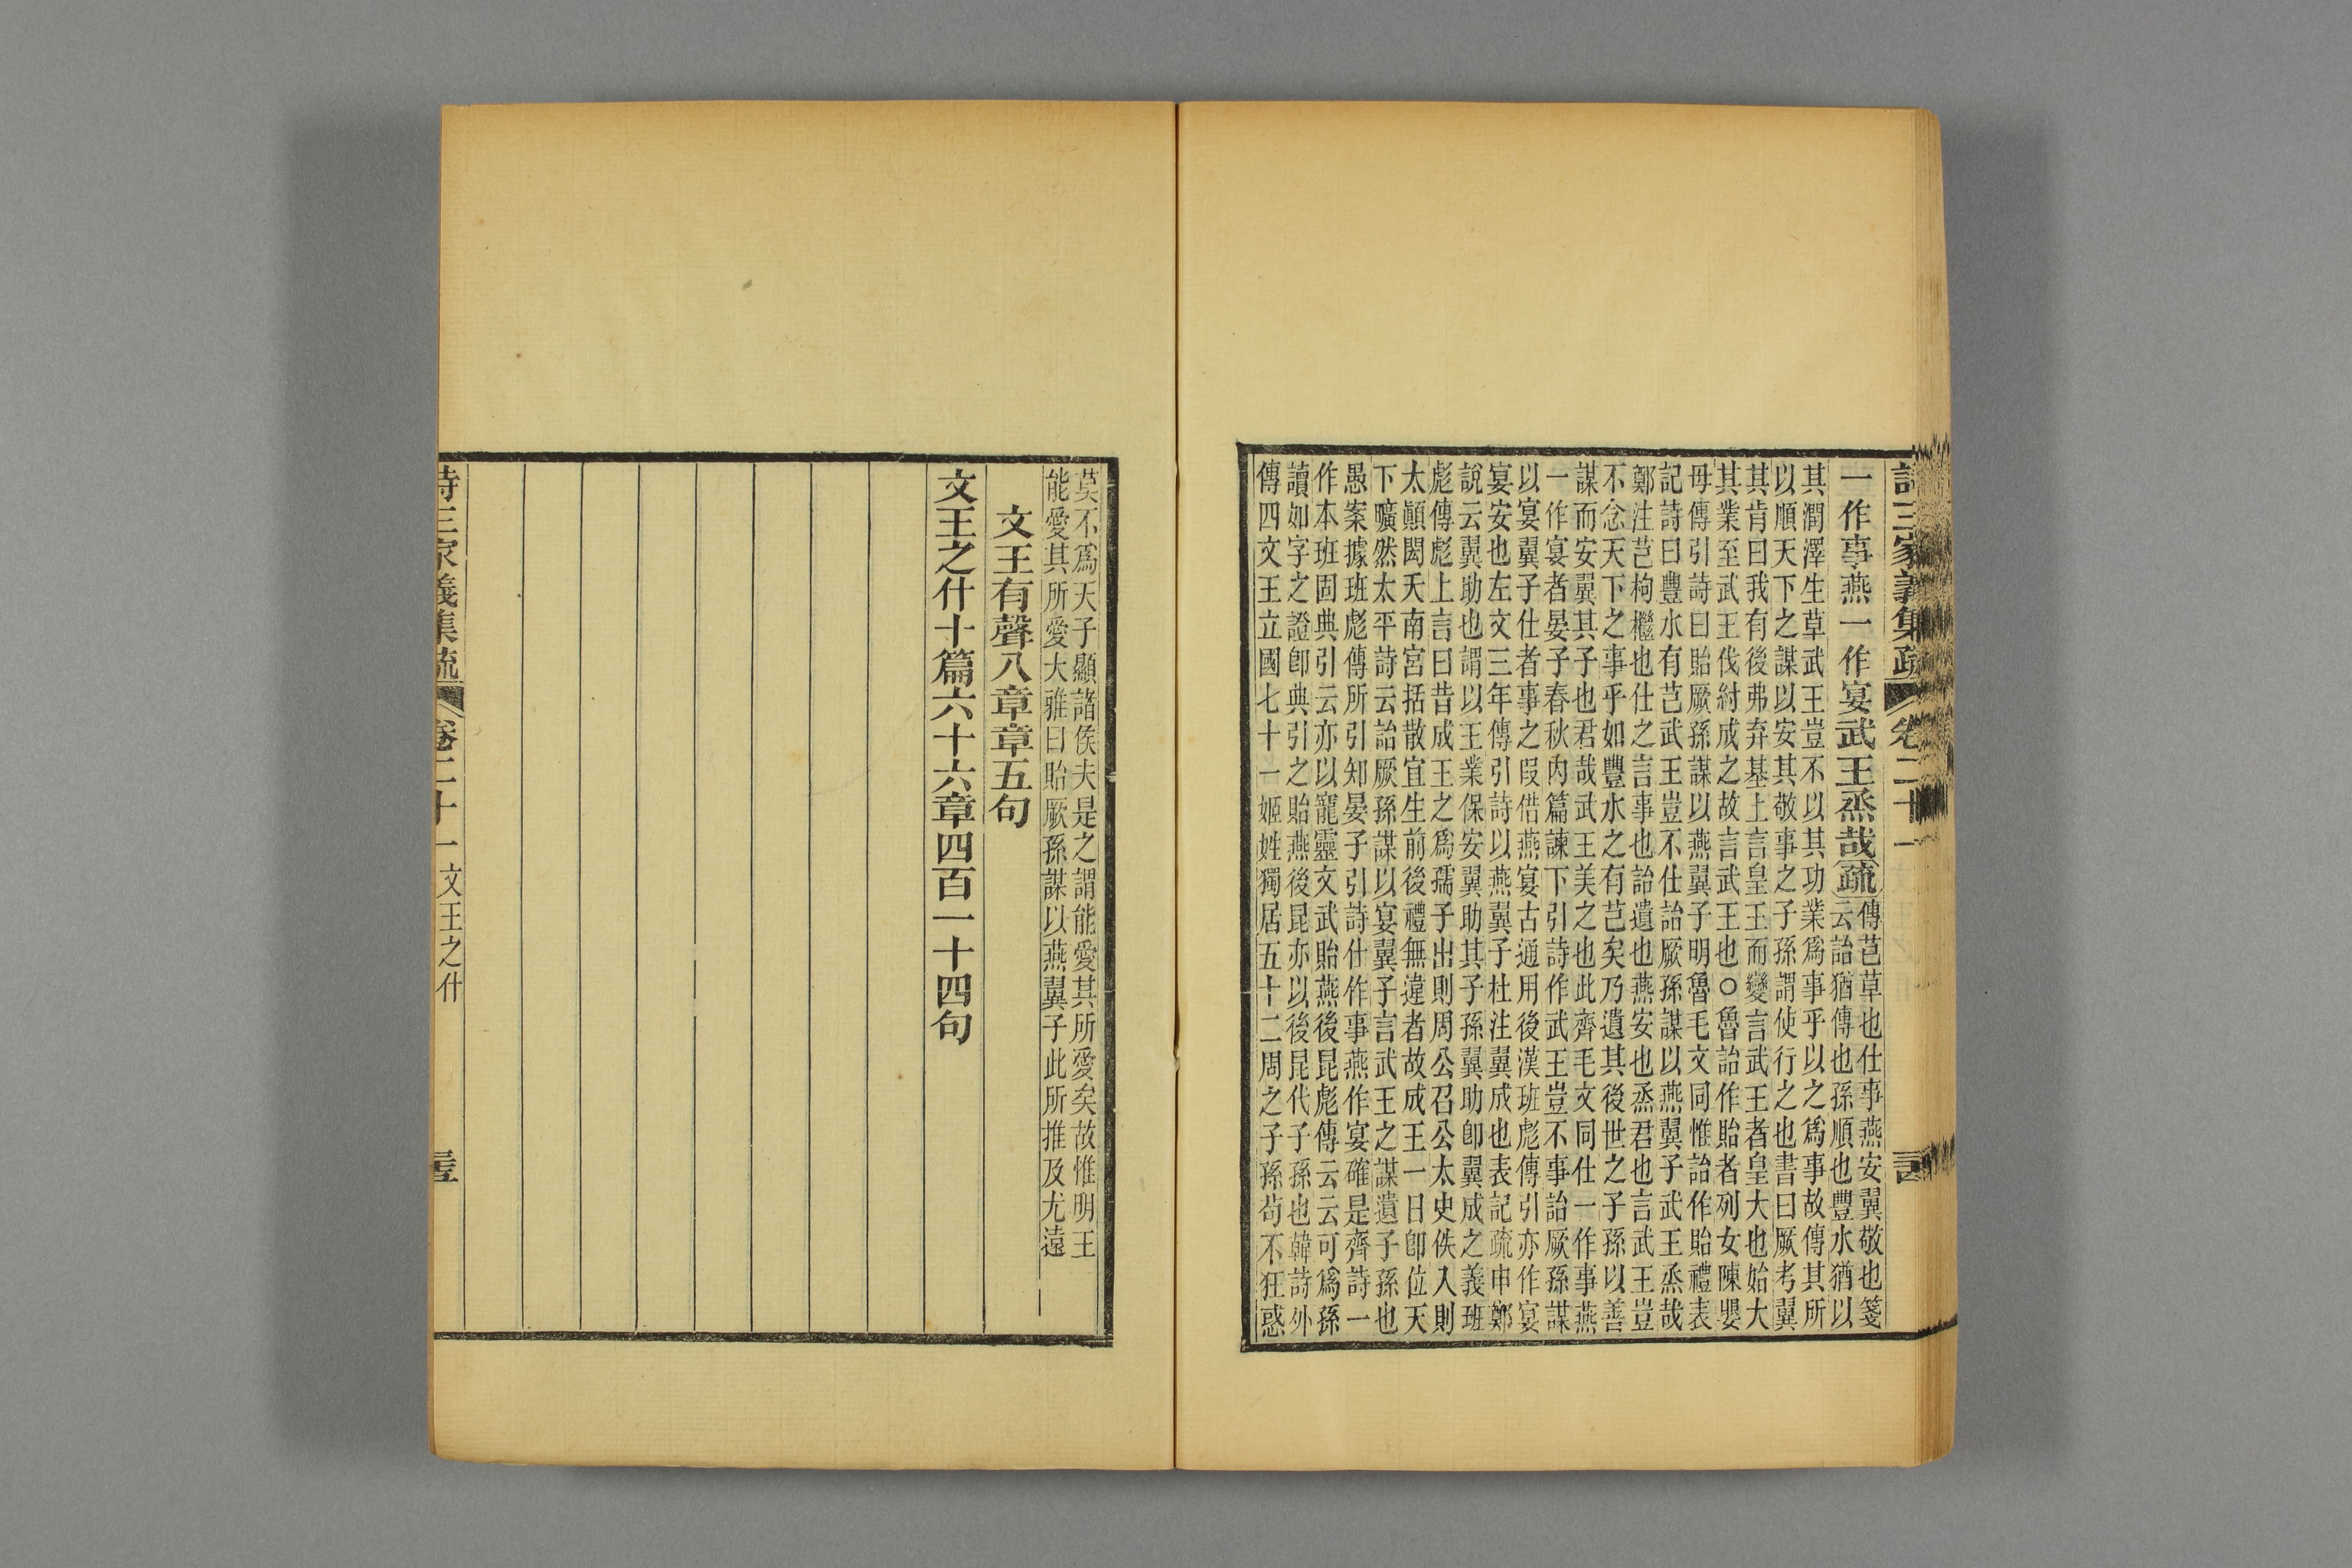 詩三家義集疏 卷二十一
一作事燕一作宴武王烝哉疏
傳芑草也仕事燕安翼敬也箋
云詒猶傳也孫順也豐水猶以
其潤澤生草武王豈不以其功業爲事乎以之爲事故傳其所
以順天下之謀以安其敬事之子孫謂使行之也書曰厥考翼
其肯曰我有後弗弃基上言皇王而變言武王者皇大也始大
其業至武王伐紂成之故言武王也○魯詒作貽者列女陳嬰
母傳引詩曰貽厥孫謀以燕翼子明魯毛文同惟詒作貽禮表
記詩曰豐水有芑武王豈不仕詒厥孫謀以燕翼子武王烝哉
鄭注芑枸檵也仕之言事也詒遺也燕安也烝君也言武王豈
不念天下之事乎如豐水之有芑矣乃遺其後世之子孫以善
謀而安翼其子也君哉武王美之也此齊毛文同仕一作事燕
一作宴者晏子春秋內篇諫下引詩作武王豈不事詒厥孫謀
以宴翼子仕者事之叚借燕宴古通用後漢班彪傳引亦作宴
宴安也左文三年傳引詩以燕翼子杜注翼成也表記疏申鄭
說云翼助也謂以王業保安翼助其子孫翼助卽翼成之義班
彪傳彪上言曰昔成王之爲孺子出則周公召公太史佚入則
太顚閎夭南宮括散宜生前後禮無違者故成王一日卽位天
下曠然太平詩云詒厥孫謀以宴翼子言武王之謀遺子孫也
愚案據班彪傳所引知晏子引詩仕作事燕作宴確是齊詩一
作本班固典引云亦以寵靈文武貽燕後昆彪傳云云可爲孫
讀如字之證卽典引之貽燕後昆亦以後昆代子孫也韓詩外
傳四文王立國七十一姬姓獨居五十二周之子孫苟不狂惑
莫不爲天子顯諸侯夫是之謂能愛其所愛矣故惟明王
能愛其所愛大雅曰貽厥孫謀以燕翼子此所推及尤遠
文王有聲八章章五句
文王之什十篇六十六章四百一十四句
詩三家義集疏 卷二十一 文王之什